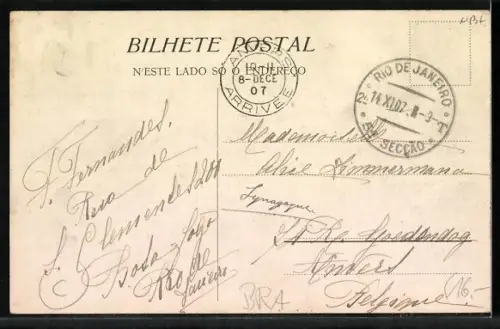 BILHETE POSTAL
N'ESTE LADO SÓ O ENDEREÇO
ANVERS
10-11
8-DECE
07
ARRIVEE
RIO DE JANEIRO
14 XI 07
5ª SECÇÃO
F. Fernandes,
Rua de
S. Clemente
Bota-fogo
Rio de
Janeiro
Mademoiselle
Alice Zimmermann
Synagogue
Anvers
Belgique
BRA
16.-